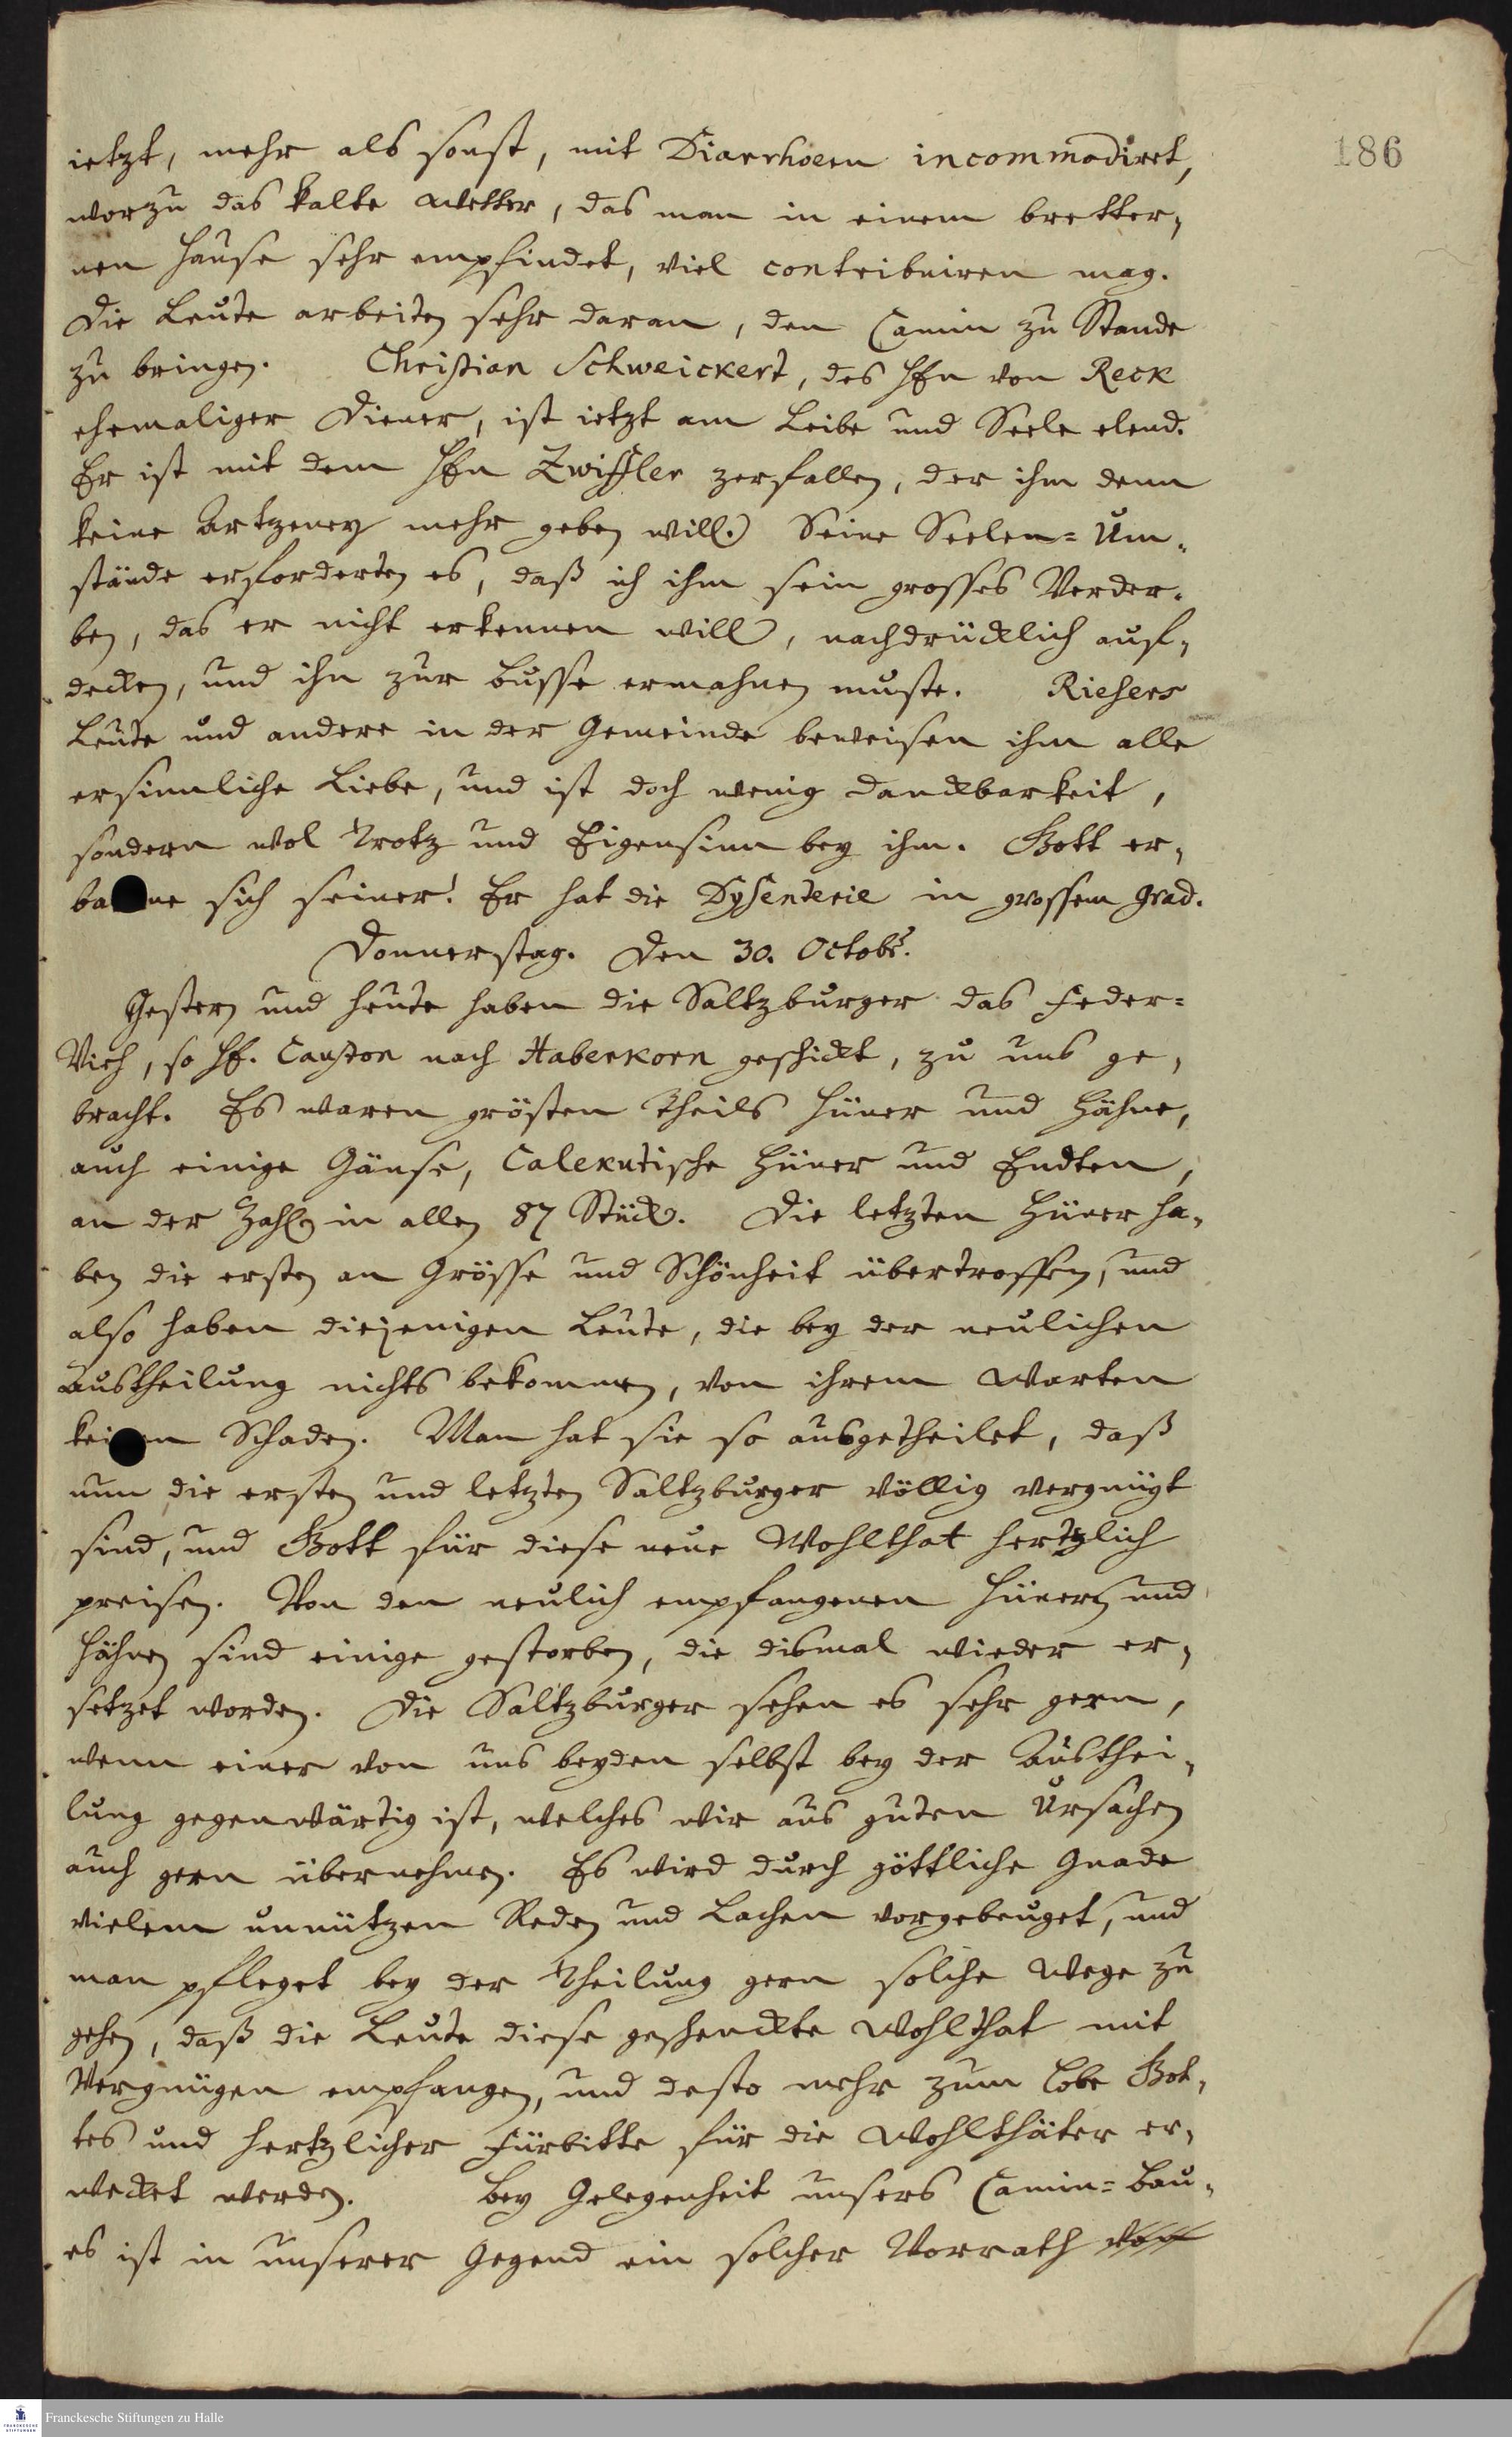 186
ietzt, mehr als sonst, mit Diarrhoeen incommodiret,
worzu das kalte Wetter, das man in einem bretter,
nen Hause sehr empfindet, viel contribuiren mag.
Die Leute arbeiten sehr daran, den Camin zu Stande
zu bringen. Christian Schweickert, des Hℓn von Reck
ehemaliger Diener, ist ietzt am Leibe und Seele elend.
Er ist mit dem Hℓn Zwifler zerfallen, der ihm denn
keine Artzeney mehr geben will. Seine Seelen=Um,
stände erforderten es, daß ich ihm sein grosses Verder,
ben, das er nicht erkennen will, nachdrücklich auf,
decken, und ihn zur Busse ermahnen muste. Riesers
Leute und andere in der Gemeinde beweisen ihm alle
ersinnliche Liebe, und ist doch wenig Danckbarkeit,
sondern wol Trotz und Eigensinn bey ihm. Gott er,
barme sich seiner! Er hat die Dysenterie in grossem Grad.
Donnerstag. Den 30. Octobr.
Gestern und heute haben die Saltzburger das Feder=
Vieh, so Hℓ. Causton nach Haberkorn geschickt, zu uns ge,
bracht. Es waren grösten Theils Hüner und Hähne,
auch einige Gänse, Calekutische Hüner und Endten,
an der Zahl in allen 87 Stück. Die letzten Hüner ha,
ben die ersten an Grösse und Schönheit übertroffen, und
also haben diejenigen Leute, die bey der neulichen
Austheilung nichts bekommen, von ihrem Warten
keinen Schaden. Man hat sie so ausgetheilet, daß
nun die ersten und letzten Saltzburger völlig vergnügt
sind, und Gott für diese neue Wohlthat hertzlich
preisen. Von den neulich empfangenen Hünern und
Hähnen sind einige gestorben, die dismal wieder er,
setzet worden. Die Saltzburger sehen es sehr gern,
wenn einer von uns beyden selbst bey der Austhei,
lung gegenwärtig ist, welches wir aus guten Ursachen
auch gern übernehmen. Es wird durch göttliche Gnade
vielem unnützen Reden und Lachen vorgebeuget, und
man pfleget bey der Theilung gern solche Wege zu
gehen, daß die Leute diese geschenckte Wohlthat mit
Vergnügen empfangen, und desto mehr zum Lobe Got,
tes und hertzlicher Fürbitte für die Wohlthäter er,
wecket werden. Bey Gelegenheit unsers Camin=Bau,
es ist in unserer Gegend ein solcher Vorrath von
Franckesche Stiftungen zu Halle